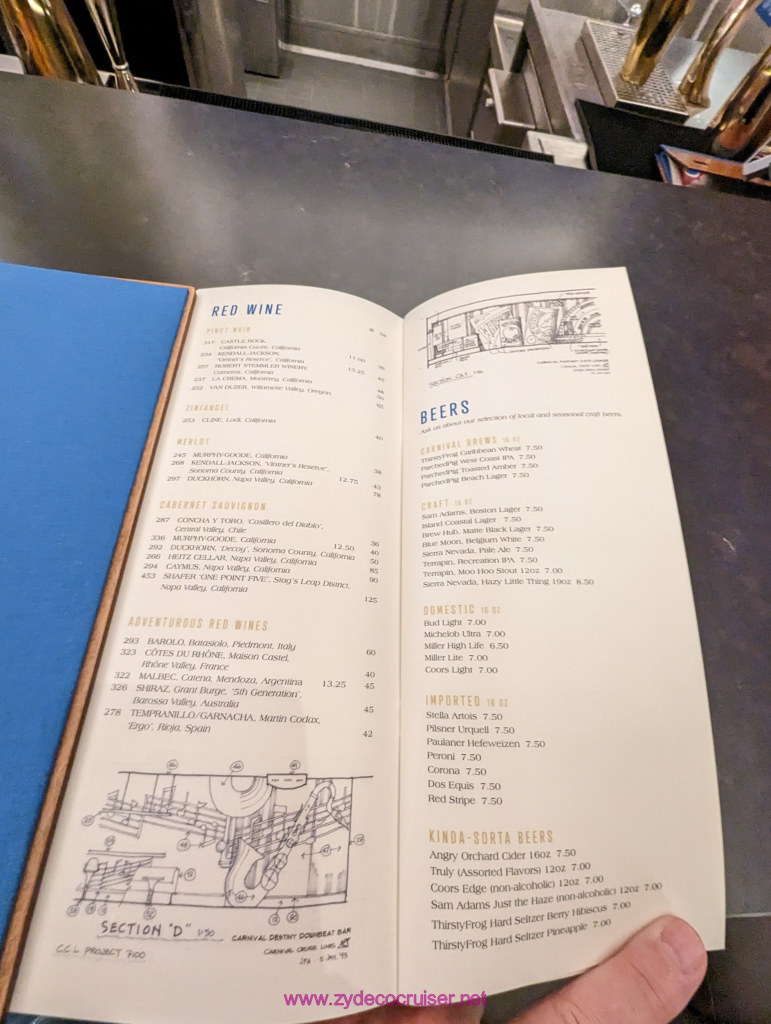 RED WINE
PINOT NOIR
317 CASTLE ROCK,
California Coast, California
234 KENDALL-JACKSON,
'Vintner's Reserve', California 11.00
257 ROBERT STEMMLER WINERY,
Carneros, California 13.25
237 LA CREMA, Monterey, California
252 VAN DUZER, Willamette Valley, Oregon
ZINFANDEL
253 CLINE, Lodi, California 40
MERLOT
245 MURPHY-GOODE, California
268 KENDALL-JACKSON, 'Vintner's Reserve', 38
Sonoma County, California 12.75 43
297 DUCKHORN, Napa Valley, California 78
CABERNET SAUVIGNON
287 CONCHA Y TORO, 'Casillero del Diablo',
Central Valley, Chile 36
336 MURPHY-GOODE, California 12.50 40
292 DUCKHORN, 'Decoy', Sonoma County, California 50
266 HEITZ CELLAR, Napa Valley, California 85
294 CAYMUS, Napa Valley, California 90
453 SHAFER 'ONE POINT FIVE', Stag's Leap District,
Napa Valley, California 125
ADVENTUROUS RED WINES
293 BAROLO, Batasiolo, Piedmont, Italy 60
323 CÔTES DU RHÔNE, Maison Castel,
Rhône Valley, France 40
322 MALBEC, Catena, Mendoza, Argentina 13.25 45
326 SHIRAZ, Grant Burge, '5th Generation',
Barossa Valley, Australia 45
278 TEMPRANILLO/GARNACHA, Martin Codax,
'Ergo', Rioja, Spain 42
SECTION "D" 1:50
CARNIVAL DESTINY DOWNBEAT BAR
CARNIVAL CRUISE LINES
C.C.L PROJECT 7100
BEERS
Ask us about our selection of local and seasonal craft beers.
CARNIVAL BREWS 16 OZ
ThirstyFrog Caribbean Wheat 7.50
ParchedPig West Coast IPA 7.50
ParchedPig Toasted Amber 7.50
ParchedPig Beach Lager 7.50
CRAFT 16 OZ
Sam Adams, Boston Lager 7.50
Island Coastal Lager 7.50
Brew Hub, Matte Black Lager 7.50
Blue Moon, Belgium White 7.50
Sierra Nevada, Pale Ale 7.50
Terrapin, Recreation IPA 7.50
Terrapin, Moo Hoo Stout 12oz 7.00
Sierra Nevada, Hazy Little Thing 19oz 8.50
DOMESTIC 16 OZ
Bud Light 7.00
Michelob Ultra 7.00
Miller High Life 6.50
Miller Lite 7.00
Coors Light 7.00
IMPORTED 16 OZ
Stella Artois 7.50
Pilsner Urquell 7.50
Paulaner Hefeweizen 7.50
Peroni 7.50
Corona 7.50
Dos Equis 7.50
Red Stripe 7.50
KINDA-SORTA BEERS
Angry Orchard Cider 16oz 7.50
Truly (Assorted Flavors) 12oz 7.00
Coors Edge (non-alcoholic) 12oz 7.00
Sam Adams Just the Haze (non-alcoholic) 12oz 7.00
ThirstyFrog Hard Seltzer Berry Hibiscus 7.00
ThirstyFrog Hard Seltzer Pineapple 7.00
www.zydecocruiser.net